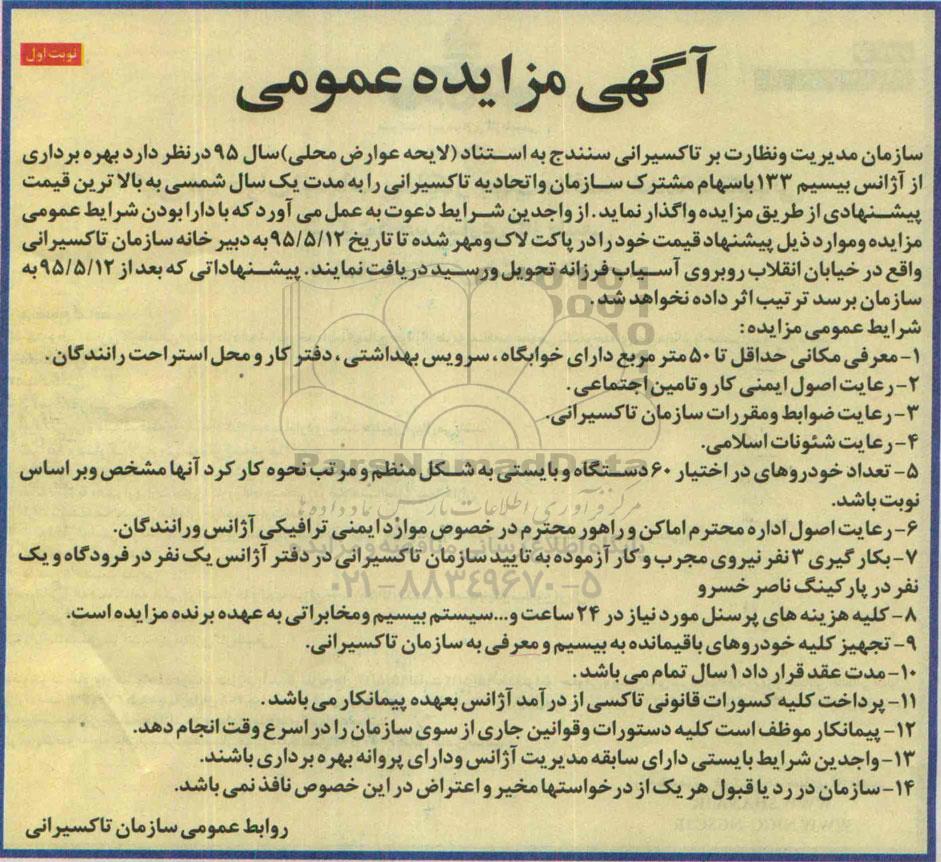 نوبت اول
آگهی مزایده عمومی
سازمان مدیریت ونظارت بر تاکسیرانی سنندج به استناد (لایحه عوارض محلی)سال ۹۵ درنظر دارد بهره برداری
از آژانس بیسیم ۱۳۳ باسهام مشترک سازمان واتحادیه تاکسیرانی را به مدت یک سال شمسی به بالا ترین قیمت
پیشنهادی از طریق مزایده واگذار نماید. از واجدین شرایط دعوت به عمل می آورد که با دارا بودن شرایط عمومی
مزایده وموارد ذیل پیشنهاد قیمت خود را در پاکت لاک ومهر شده تا تاریخ ۹۵/۵/۱۲ به دبیر خانه سازمان تاکسیرانی
واقع در خیابان انقلاب روبروی آسیاب فرزانه تحویل ورسید دریافت نمایند. پیشنهاداتی که بعد از ۹۵/۵/۱۲ به
سازمان برسد ترتیب اثر داده نخواهد شد.
شرایط عمومی مزایده:
۱- معرفی مکانی حداقل تا ۵۰ متر مربع دارای خوابگاه، سرویس بهداشتی، دفتر کار و محل استراحت رانندگان.
۲- رعایت اصول ایمنی کار و تامین اجتماعی.
۳- رعایت ضوابط ومقررات سازمان تاکسیرانی.
۴- رعایت شئونات اسلامی.
۵- تعداد خودروهای در اختیار ۶۰ دستگاه و بایستی به شکل منظم و مرتب نحوه کار کرد آنها مشخص وبر اساس
نوبت باشد.
۶- رعایت اصول اداره محترم اماکن و راهور محترم در خصوص موارد ایمنی ترافیکی آژانس ورانندگان.
۷- بکار گیری ۳ نفر نیروی مجرب و کار آزموده به تایید سازمان تاکسیرانی در دفتر آژانس یک نفر در فرودگاه و یک
نفر در پارکینگ ناصر خسرو
۸- کلیه هزینه های پرسنل مورد نیاز در ۲۴ ساعت و...سیستم بیسیم ومخابراتی به عهده برنده مزایده است.
۹- تجهیز کلیه خودروهای باقیمانده به بیسیم و معرفی به سازمان تاکسیرانی.
۱۰- مدت عقد قرار داد ۱ سال تمام می باشد.
۱۱- پرداخت کلیه کسورات قانونی تاکسی از درآمد آژانس بعهده پیمانکار می باشد.
۱۲- پیمانکار موظف است کلیه دستورات وقوانین جاری از سوی سازمان را در اسرع وقت انجام دهد.
۱۳- واجدین شرایط بایستی دارای سابقه مدیریت آژانس ودارای پروانه بهره برداری باشند.
۱۴- سازمان در رد یا قبول هر یک از درخواستها مخیر و اعتراض در این خصوص نافذ نمی باشد.
روابط عمومی سازمان تاکسیرانی
ParsNamadData
مرکز فرآوری اطلاعات پارس نماد داده ها
۰۲۱-۸۸۳۴۹۶۷۰-۵